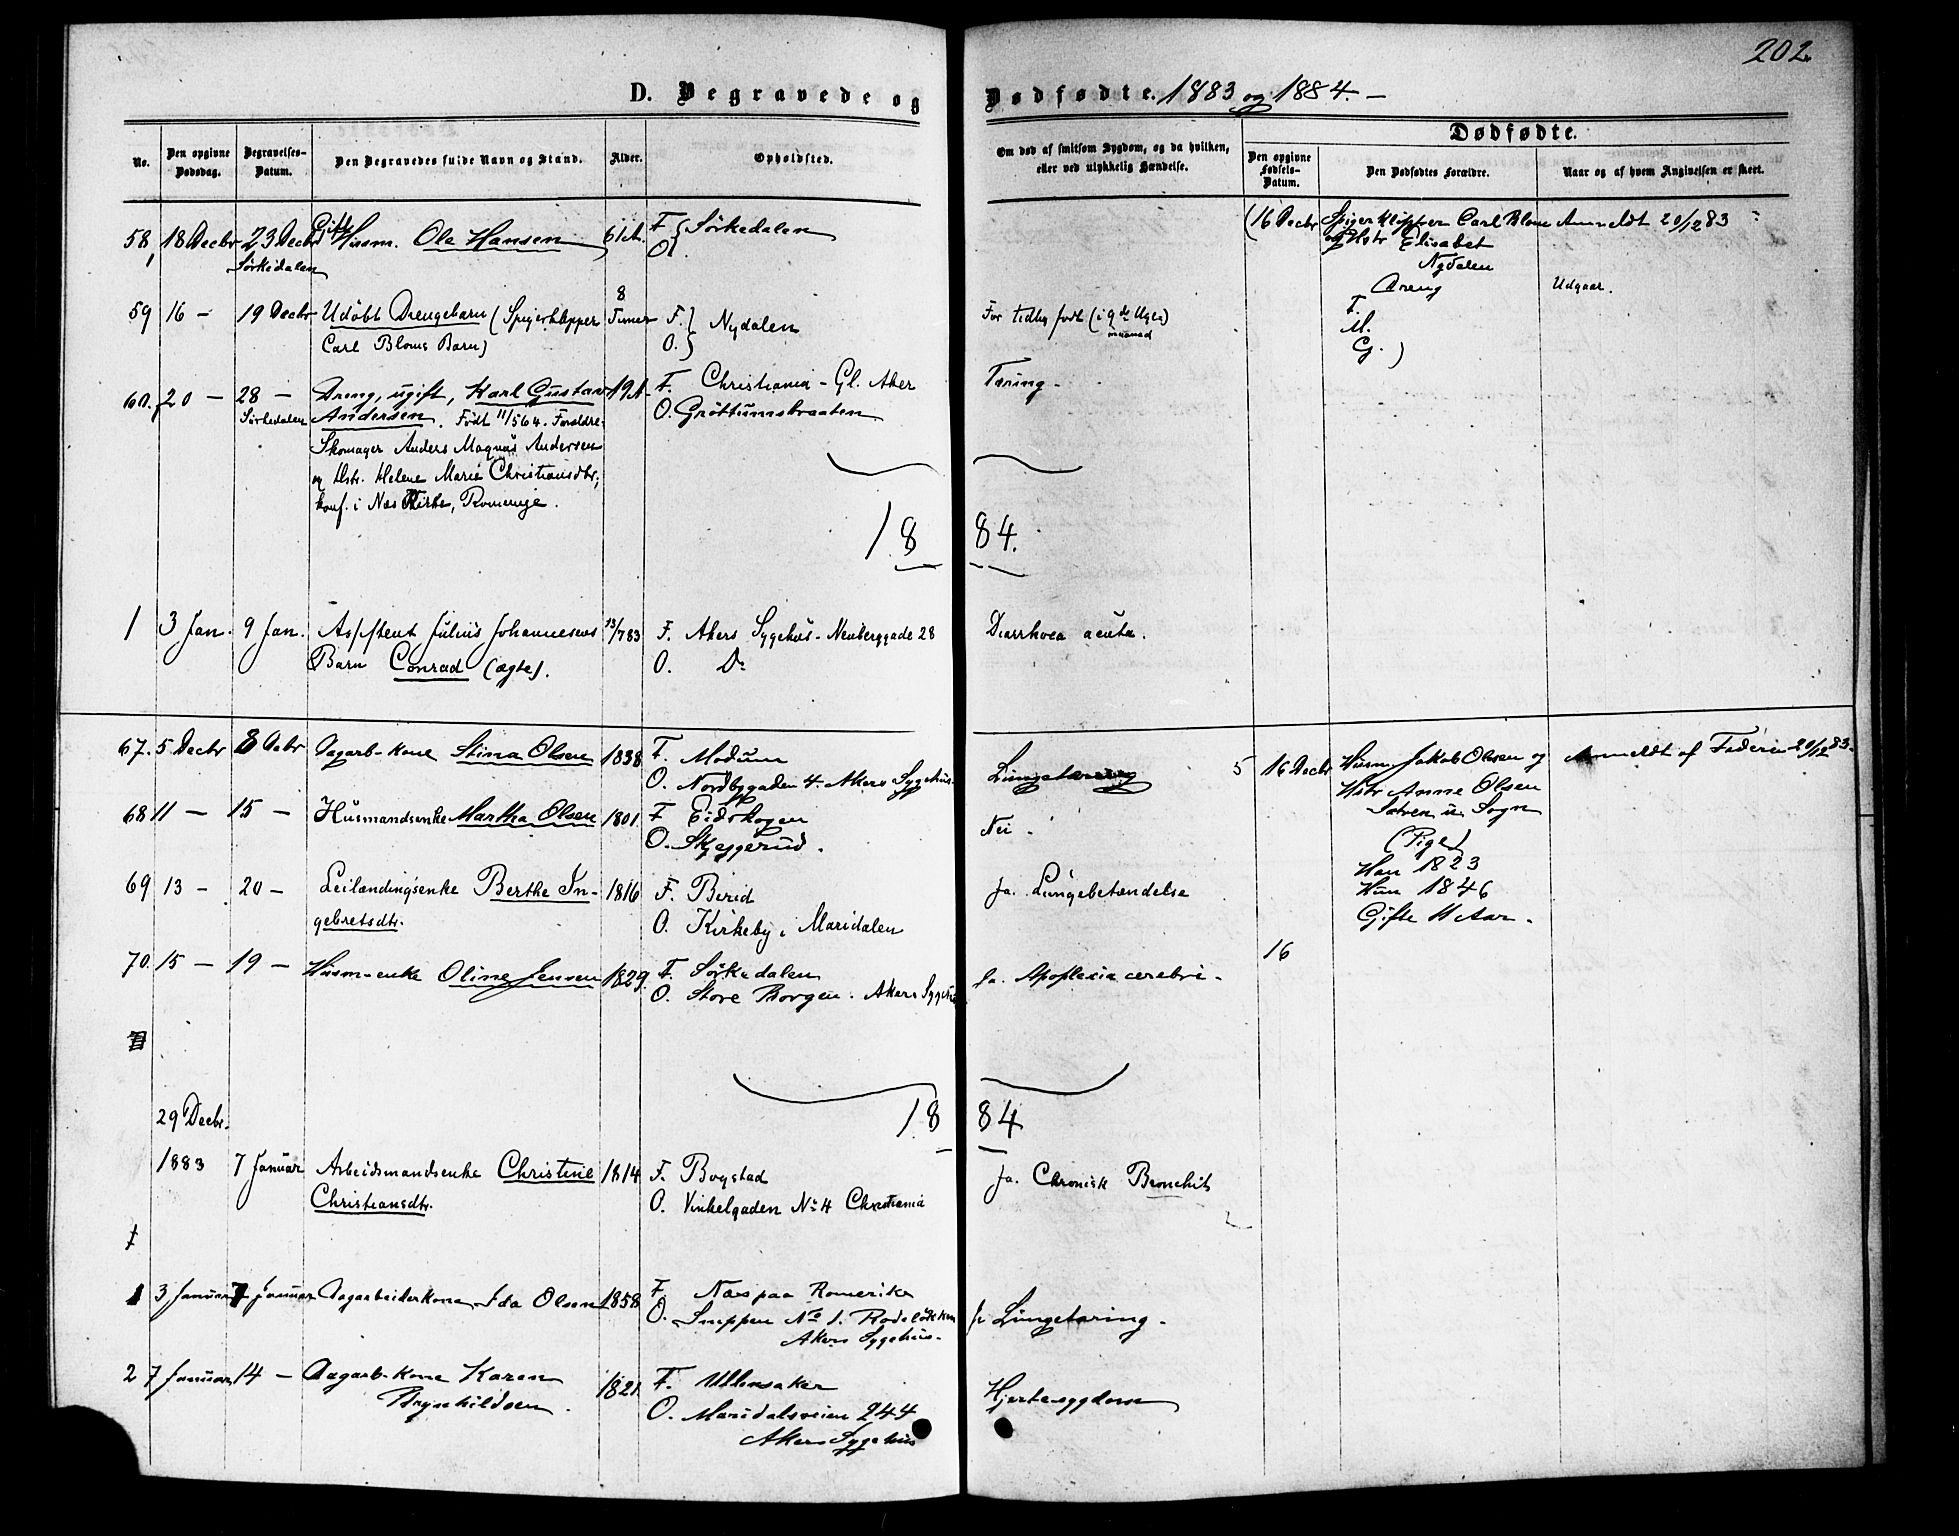 202.
D. Begravede og Dødfødte. 1883 og 1884. –
No.
Den opgivne Dødsdag.
Begravelses-Datum.
Den Begravedes fulde Navn og Stand.
Alder.
Opholdsted.
Om død af smitsom Sygdom, og da hvilken, eller ved ulykkelig Hændelse.
Dødfødte.
Den opgivne Fødsels-Datum.
Den Dødfødtes Forældre.
Naar og af hvem Angivelsen er skeet.
58, 18 Decbr 23 Decbr Gift Husm. Ole Hansen 61 A. F. } Sørkedalen
Sørkedalen O.
(16 Decbr Spigerklipper Carl Blom Anmeldt 20/12 83
og Hstr Elisabet
Nydalen
Dreng Udgaar.
F.
M.
G. )
59 16 – 19 Decbr Udøbt Drengebarn (Spigerklipper 8 Timer F. } Nydalen For tidlig født (i 9de Uge)
maaned
Carl Bloms Barn) O. }
60. 20 – 28 – Dreng, ugift, Karl Gustav 19 A. F. Christiania – Gl. Aker Tæring –
Sørkedalen Andersen. Født 11/5 64. Forældre: O. Grøttumsbraaten
Skomager Anders Magnus Andersen
og Hstr. Helene Marie Christiansdtr.;
konf. i Næs Kirke, Romerige.
1884.
1 3 Jan. 9 Jan. Assistent Julius Johannesens 13/7 83 F. Akers Sygehus – Neuberggade 28 Diarrhoea acuta.
Barn Conrad (ægte). O. Do
67. 5 Decbr 8 Debr Dagarb-kone Stina Olsen 1838 F. Modum
O. Nordbygaden 4. Akers Sygehus. Lungetæring
5 16 Decbr Husm. Jakob Olsen og Anmeldt af Faderen 20/12 83.
Hstr Anne Olsen
u. Sogn
(Pige)
Han 1823
Hun 1846
Gifte 11 Aar.
68 11 – 15 – Husmandsenke Martha Olsen 1801. F. Eidskogen Nei.
O. Skjeggerud.
69 13 – 20 – Leilændingsenke Berthe In- 1816 F. Birid Ja. Lungebetændelse
gebretsdtr. O. Kirkeby i Maridalen
70. 15 – 19 – Husm-enke Oline Jensen 1829. F. Sørkedalen Ja. Apoplexia cerebri. 16
O. Store Borgen. Akers Sygehus
1884
29 Decbr.
1883 7 Januar Arbeidsmandsenke Christine 1814 F. Bogstad Ja. Chronisk Bronchit
Christiansdtr. O. Vinkelgaden No 4 Christiania
1 3 Januar 7 Januar Dagarbeiderkone Ida Olsen 1858 F. Næs paa Romerike
O. Snippen No 1. Rodeløkken Ja Lungetæring.
Akers Sygehus.
2 7 Januar 14 – Dagarb-kone Karen 1821. F. Ullensaker Hjertesygdom
Brynhildsen. O. Maridalsveien 244
Akers Sygehus